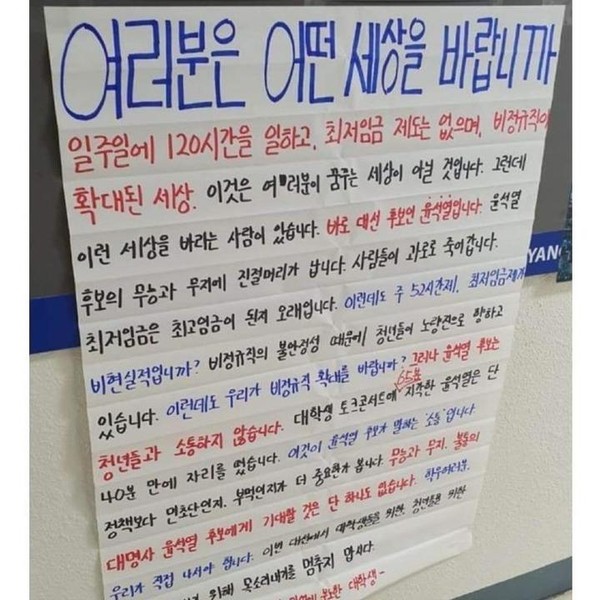 여러분은 어떤 세상을 바랍니까
일주일에 120시간을 일하고, 최저임금 제도는 없으며, 비정규직이
확대된 세상. 이것은 여러분이 꿈꾸는 세상이 아닐 것입니다. 그런데
이런 세상을 바라는 사람이 있습니다. 바로 대선 후보인 윤석열입니다. 윤석열
후보의 무능과 무지에 진절머리가 납니다. 사람들이 과로로 죽어갑니다.
최저임금은 최고임금이 된지 오래입니다. 이런데도 주 52시간제, 최저임금제가
YANG
비현실적입니까? 비정규직의 불안정성 때문에 청년들이 노량진으로 향하고
있습니다. 이런데도 우리가 비정규직 확대를 바랍니까? 그러나 윤석열 후보는
청년들과 소통하지 않습니다. 대학생 토크콘서트에 65분 지각한 윤석열은 단
40분 만에 자리를 떴습니다. 이것이 윤석열 후보가 말하는 '소통'입니다.
정책보다 민초단인지, 부먹인지가 더 중요한가 봅니다. 무능과 무지, 불통의
대명사 윤석열 후보에게 기대할 것은 단 하나도 없습니다. 학우여러분,
우리가 직접 나서야 합니다. 이번 대선에서 대학생들을 위한, 청년들을 위한
위해 목소리내기를 멈추지 맙시다.
분노한 대학생-